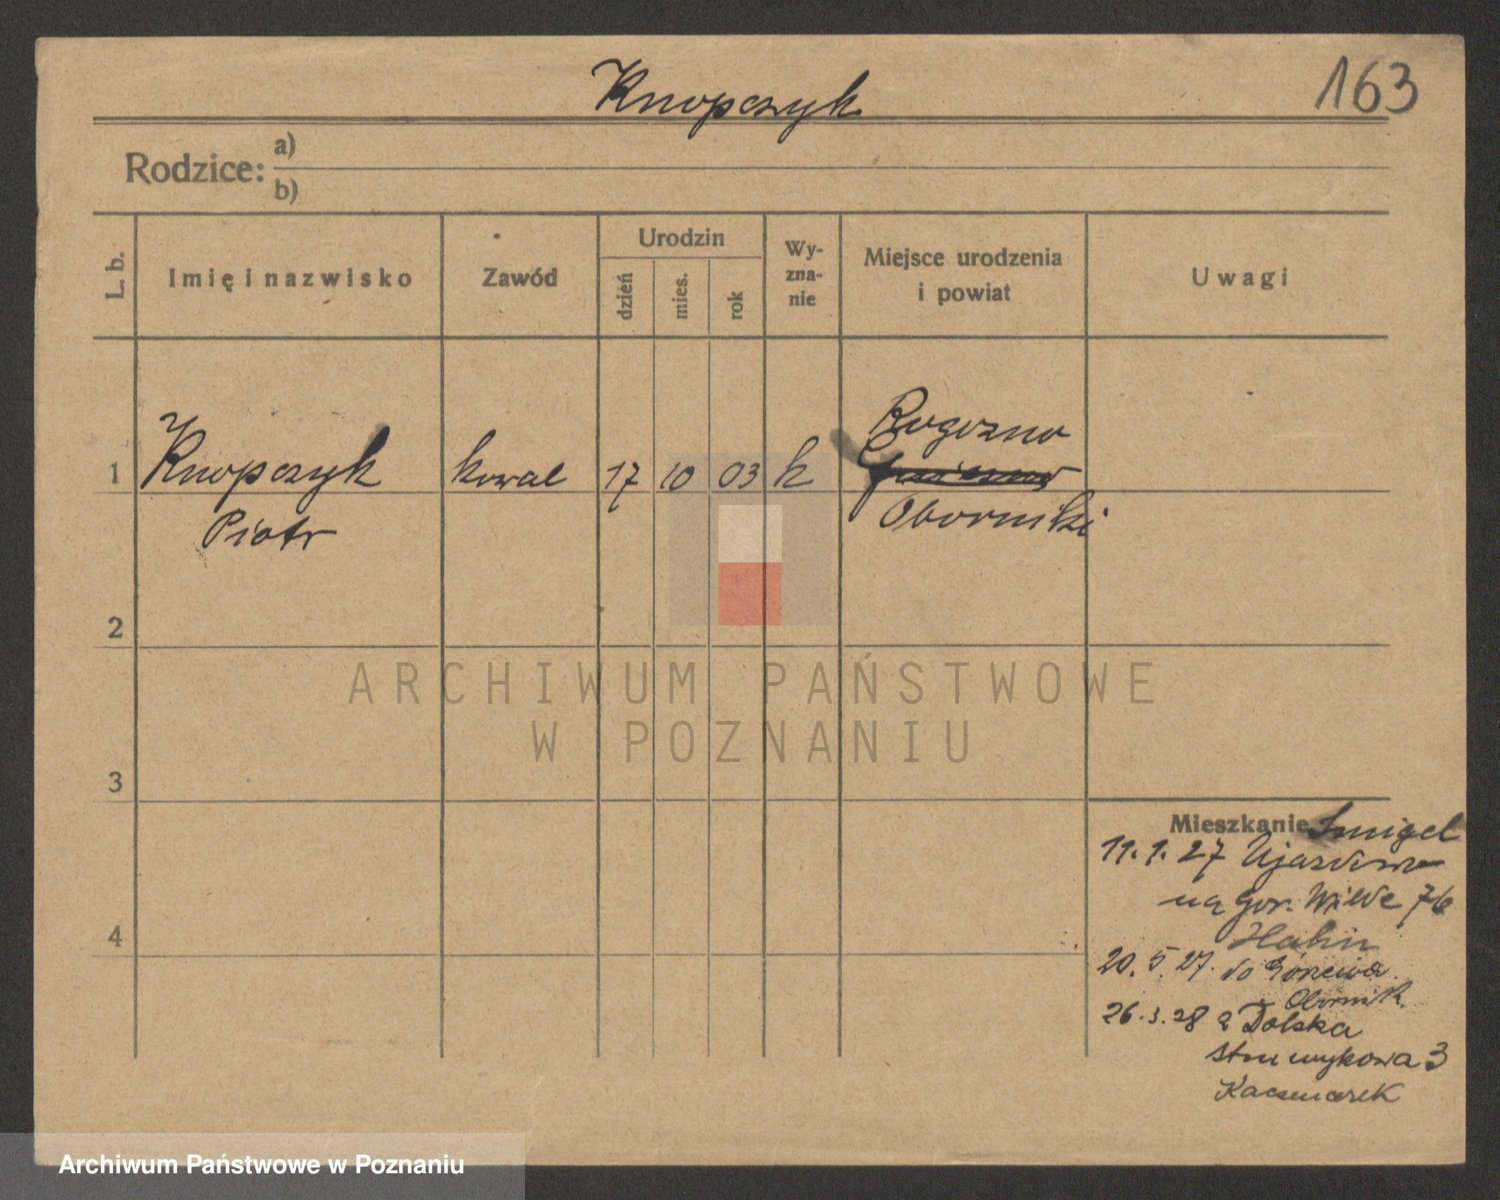 Knopczyk
163
Rodzice: a)
b)
L. b.
Imię i nazwisko
Zawód
Urodzin
dzień
mies.
rok
Wy-
zna-
nie
Miejsce urodzenia
i powiat
Uwagi
Rogozno
1 Knopczyk kowal 17 10 03 k
Piotr
Oborniki
2
3
4
Mieszkanie Smigel
11.1.27
na Gór. Wilde 76
Hahn
20.5.27. do
Obornik.
26.3.28 z Dolska
Strumykowa 3
Kaczmarek
ARCHIWUM PAŃSTWOWE
W POZNANIU
Archiwum Państwowe w Poznaniu